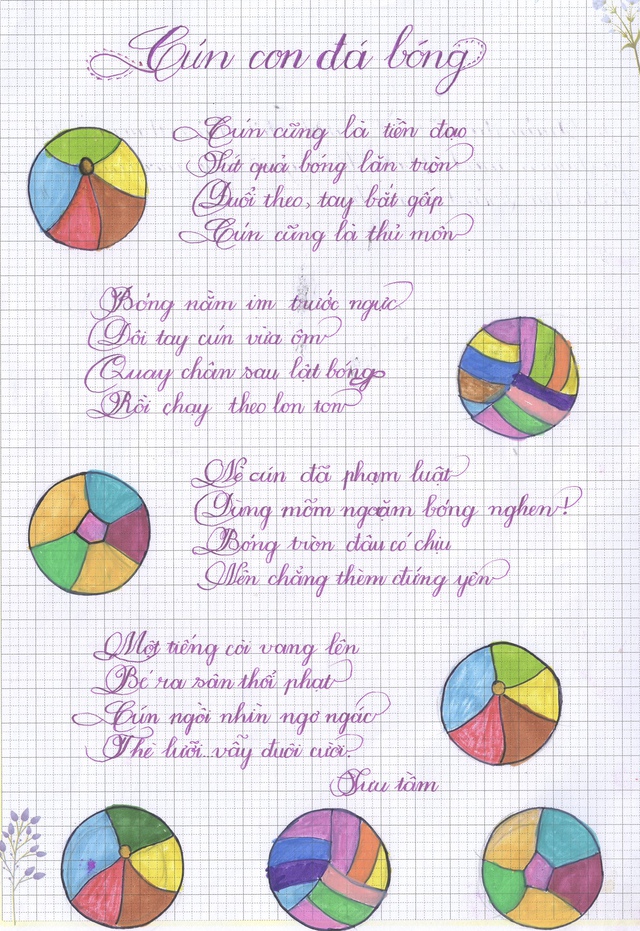 Cún con đá bóng
Cún cũng là tiền đạo
Sút quả bóng lăn tròn
Đuổi theo, tay bắt gấp
Cún cũng là thủ môn
Bóng nằm im trước ngực
Đôi tay cún vừa ôm
Quay chân sau lật bóng
Rồi chạy theo lon ton
Nè cún đã phạm luật
Dùng mõm ngoặm bóng nghen!
Bóng tròn đâu có chịu
Nên chẳng thèm đứng yên
Một tiếng còi vang lên
Bé ra sân thổi phạt
Cún ngồi nhìn ngơ ngác
Thè lưỡi...vẫy đuôi cười.
Sưu tầm